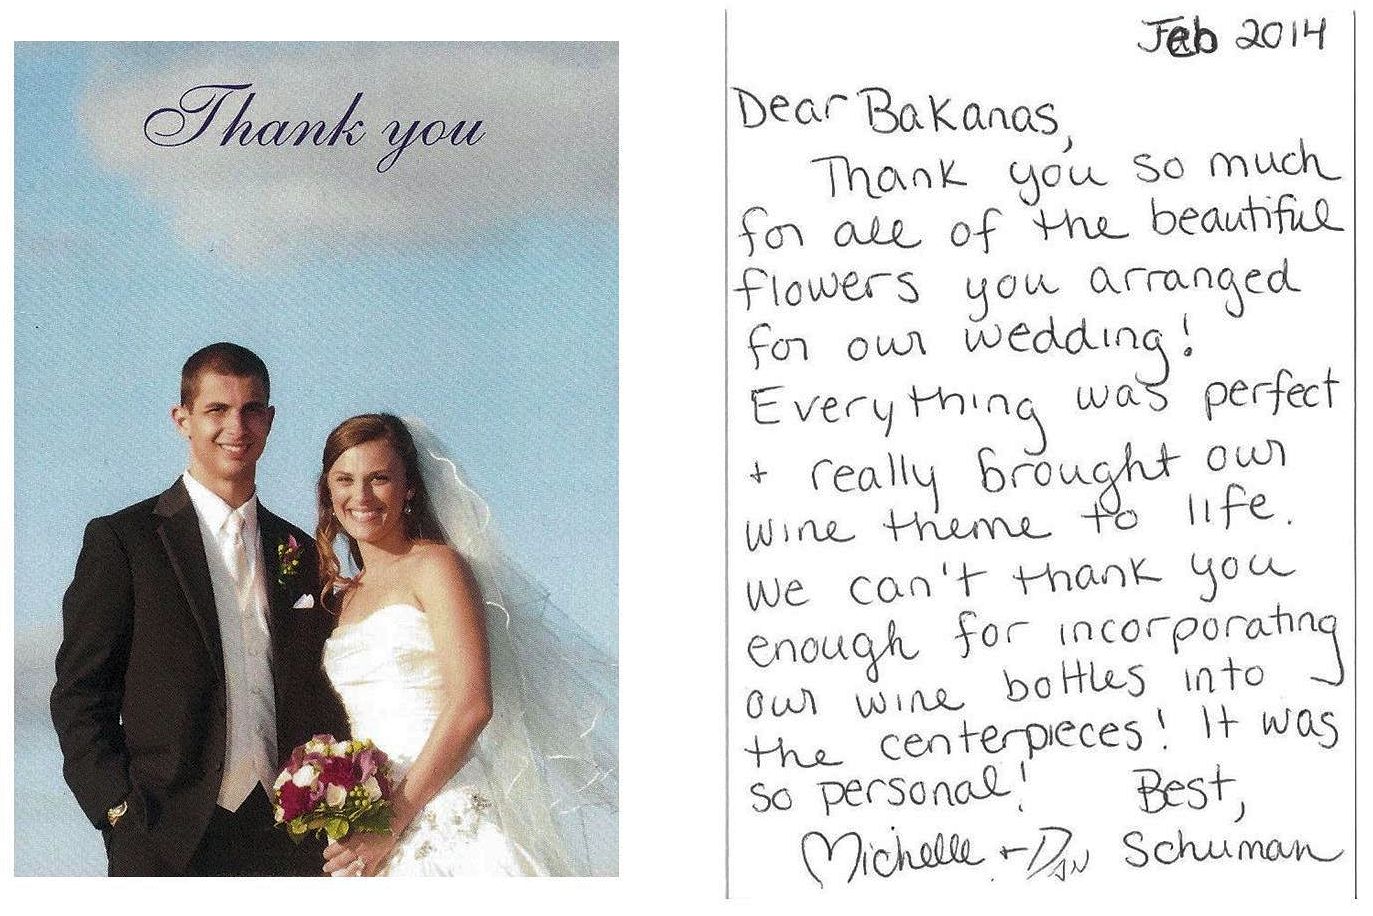 Thank you
Feb 2014
Dear Bakanas,
Thank you so much
for all of the beautiful
flowers you arranged
for our wedding!
Everything was perfect
+ really brought our
wine theme to life.
We can't thank you
enough for incorporating
our wine bottles into
the centerpieces! It was
so personal! Best,
Michelle + Dan Schuman